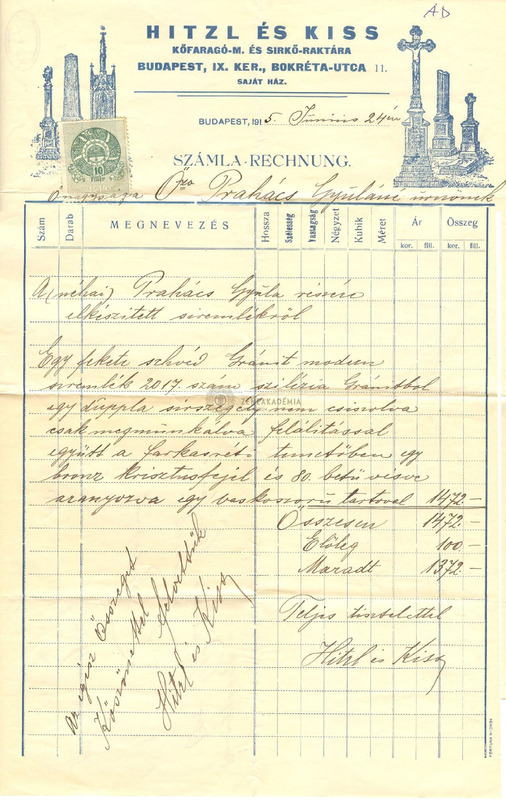 AD
HITZL ÉS KISS
KŐFARAGÓ-M. ÉS SIRKŐ-RAKTÁRA
BUDAPEST, IX. KER., BOKRÉTA-UTCA 11.
SAJÁT HÁZ.
BUDAPEST, 1915. Junius 24én
10
SZÁMLA-RECHNUNG.
Őnagysága Özv Prahács Gyuláné urnonek
Szám Darab MEGNEVEZÉS Hossza Szélesség Vastagság Négyzet Kubik Méret Ár Összeg
kor. fill. kor. fill.
A (néhai) Prahács Gyula részére
elkészitett siremlékről
Egy fekete schvéd Gránit modern
siremlék 2017 szám szilézia Gránitbol
egy duppla sirszegely nem csiszolva
ZENEAKADÉMIA
csak megmunkálva felálitással
együtt a farkasréti temetőben egy
bronz krisztusfejel és 80. betü vésve
aranyozva egy vaskoszorú tartoval 1472.—
Összesen 1472.—
Előleg 100.—
Maradt 1372.—
Teljes tisztelettel
Hitzl és Kiss
Az egész Összeget
Köszönettel felvettük
Hitzl és Kiss